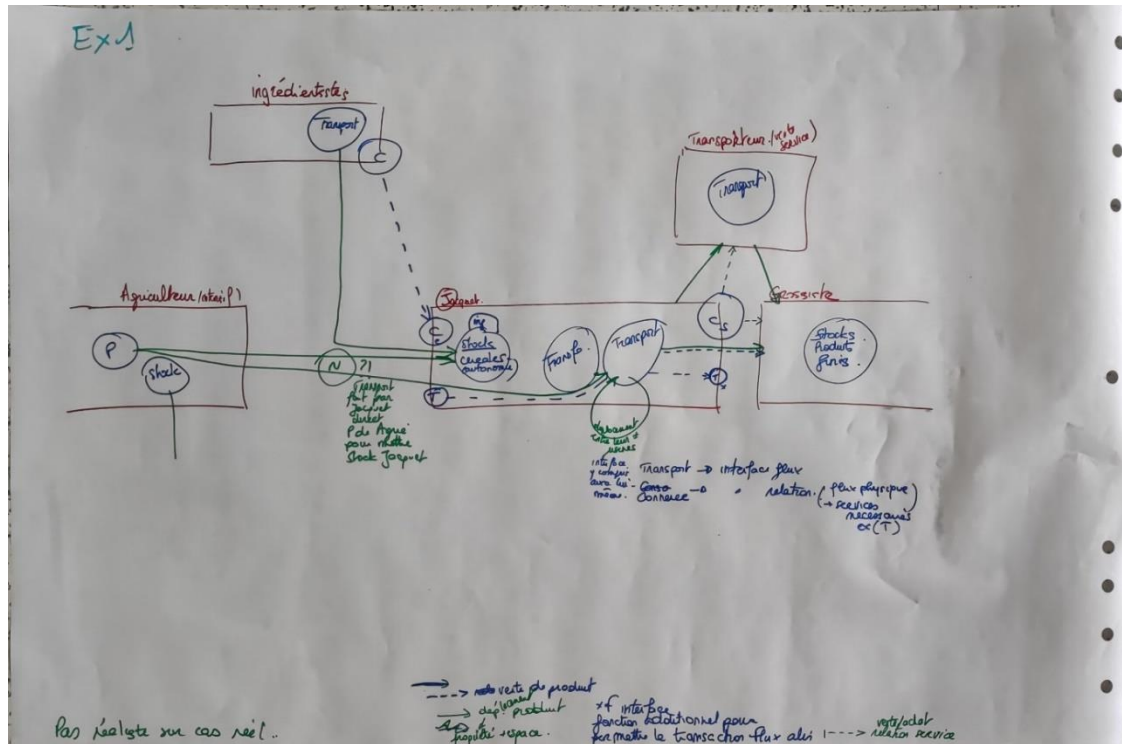 Ex1
ingrédientistes
Transport
C
Transporteur (vente
service)
Transport
Agriculteur
P
Stock
N ?!
Transport
fait par
Jacquet
direct
P de Agri
pour mettre
Stock Jacquet
Jacquet.
C
T
Stock
céréales
autonomie
Transfo.
Transport
Cs
Ts
Grossiste
Stocks
Produits
finis.
entre leur
usines
interface
y compris
avec lui
même.
Transport → interface flux
Conso
Connexe → " relation. (flux physique
→ services
nécessaires
ex (T)
vente de produit
dépl. produit
propriété espace.
interface
fonction additionnel pour
permettre la transaction flux
vente/achat
relation service
Pas réaliste sur cas réel..